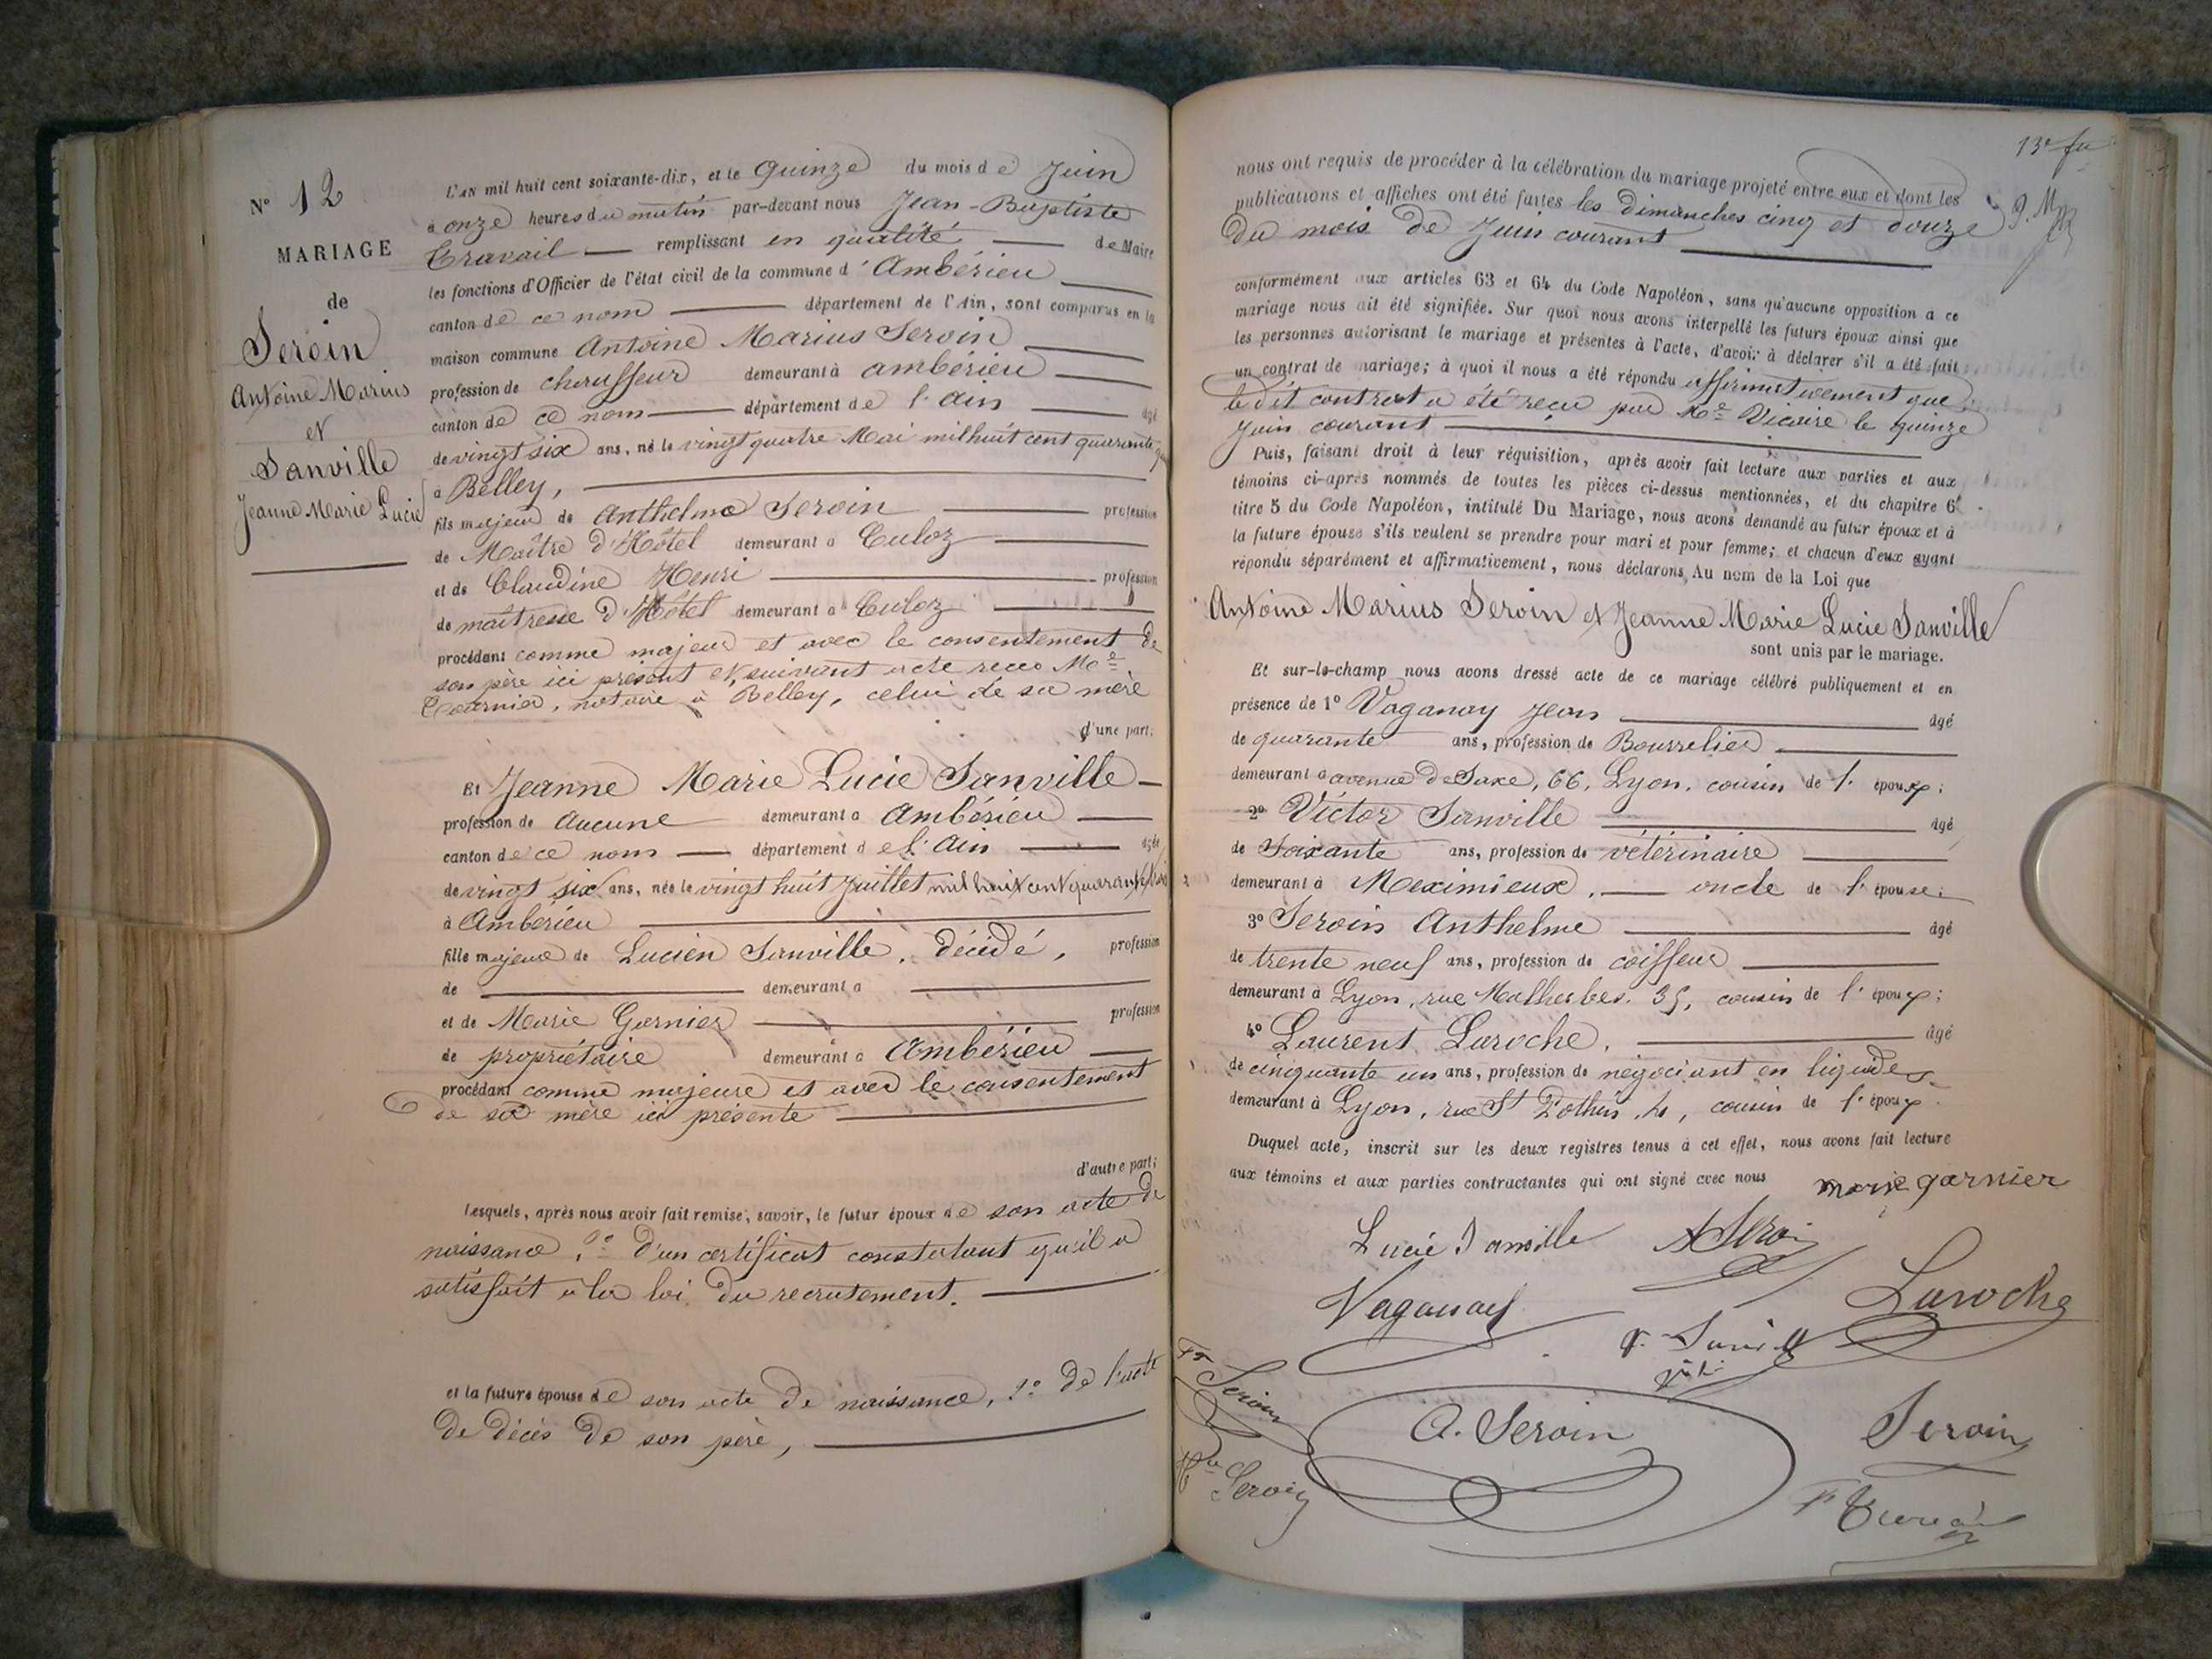 N° 12
MARIAGE
de
Seroin
Antoine Marius
et
Janville
Jeanne Marie Lucie
L'AN mil huit cent soixante-dix, et le quinze du mois de Juin
à onze heures du matin par-devant nous Jean-Baptiste
Travail remplissant en qualité de Maire
les fonctions d'Officier de l'état civil de la commune d'Ambérieu
canton de ce nom département de l'Ain, sont comparus en la
maison commune Antoine Marius Seroin
profession de chauffeur demeurant à ambérieu
canton de ce nom département de l'Ain âgé
de vingt six ans, né le vingt quatre Mai mil huit cent quarante
à Belley,
fils majeur de Anthelme Seroin profession
de Maître d'Hôtel demeurant à Culoz
et de Claudine Henri profession
de maîtresse d'Hôtel demeurant à Culoz
procédant comme majeur et avec le consentement de
son père ici présent et, suivant acte recu Me
notaire à Belley, celui de sa mère
d'une part;
Et Jeanne Marie Lucie Janville
profession de Aucune demeurant à Ambérieu
canton de ce nom département de l'Ain âgée
de vingt six ans, née le vingt huit Juillet mil huit cent quarante
à Ambérieu
fille majeure de Lucien Janville, décédé, profession
de demeurant à
et de Marie Garnier profession
de propriétaire demeurant à Ambérieu
procédant comme majeure et avec le consentement
de sa mère ici présente
d'autre part;
Lesquels, après nous avoir fait remise, savoir, le futur époux de son acte de
naissance, 2° d'un certificat constatant qu'il a
satisfait à la loi du recrutement.
et la future épouse de son acte de naissance, 2° de l'acte
de décès de son père,
13e fu
nous ont requis de procéder à la célébration du mariage projeté entre eux et dont les
publications et affiches ont été faites les dimanches cinq et douze
du mois de Juin courant
conformément aux articles 63 et 64 du Code Napoléon, sans qu'aucune opposition a ce
mariage nous ait été signifiée. Sur quoi nous avons interpellé les futurs époux ainsi que
les personnes autorisant le mariage et présentes à l'acte, d'avoir à déclarer s'il a été fait
un contrat de mariage; à quoi il nous a été répondu affirmativement que
le dit contrat a été reçu par Me Vicaire le quinze
Juin courant
Puis, faisant droit à leur réquisition, après avoir fait lecture aux parties et aux
témoins ci-après nommés de toutes les pièces ci-dessus mentionnées, et du chapitre 6
titre 5 du Code Napoléon, intitulé Du Mariage, nous avons demandé au futur époux et à
la future épouse s'ils veulent se prendre pour mari et pour femme; et chacun d'eux ayant
répondu séparément et affirmativement, nous déclarons, Au nom de la Loi que
Antoine Marius Seroin et Jeanne Marie Lucie Janville
sont unis par le mariage.
Et sur-le-champ nous avons dressé acte de ce mariage célébré publiquement et en
présence de 1° Vaganay Jean âgé
de quarante ans, profession de Bourrelier
demeurant à avenue de Saxe, 66, Lyon, cousin de l'époux;
2° Victor Janville âgé
de soixante ans, profession de vétérinaire
demeurant à Meximieux, oncle de l'épouse;
3° Seroin Anthelme âgé
de trente neuf ans, profession de coiffeur
demeurant à Lyon, rue Malherbes, 35, cousin de l'époux;
4° Laurent Laroche, âgé
de cinquante un ans, profession de négociant en liquides
demeurant à Lyon, rue St Pothin, cousin de l'époux.
Duquel acte, inscrit sur les deux registres tenus à cet effet, nous avons fait lecture
aux témoins et aux parties contractantes qui ont signé avec nous
marie garnier
Lucie Janville A Seroin
Vaganay
Laroche
Seroin
A. Seroin
Seroin
Seroin